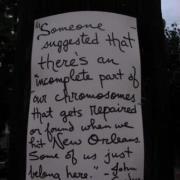 "Someone
suggested that
there's an
incomplete part of
our chromosomes
that gets repaired
or found when we
hit New Orleans.
Some of us just
belong here." - John